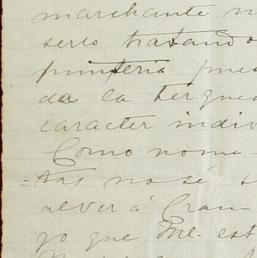 marchante n
serlo tratando
puntería pues
da la terque
caracter indiv
Como nome
tas no sé s
alver á Cran
yo que Me. est